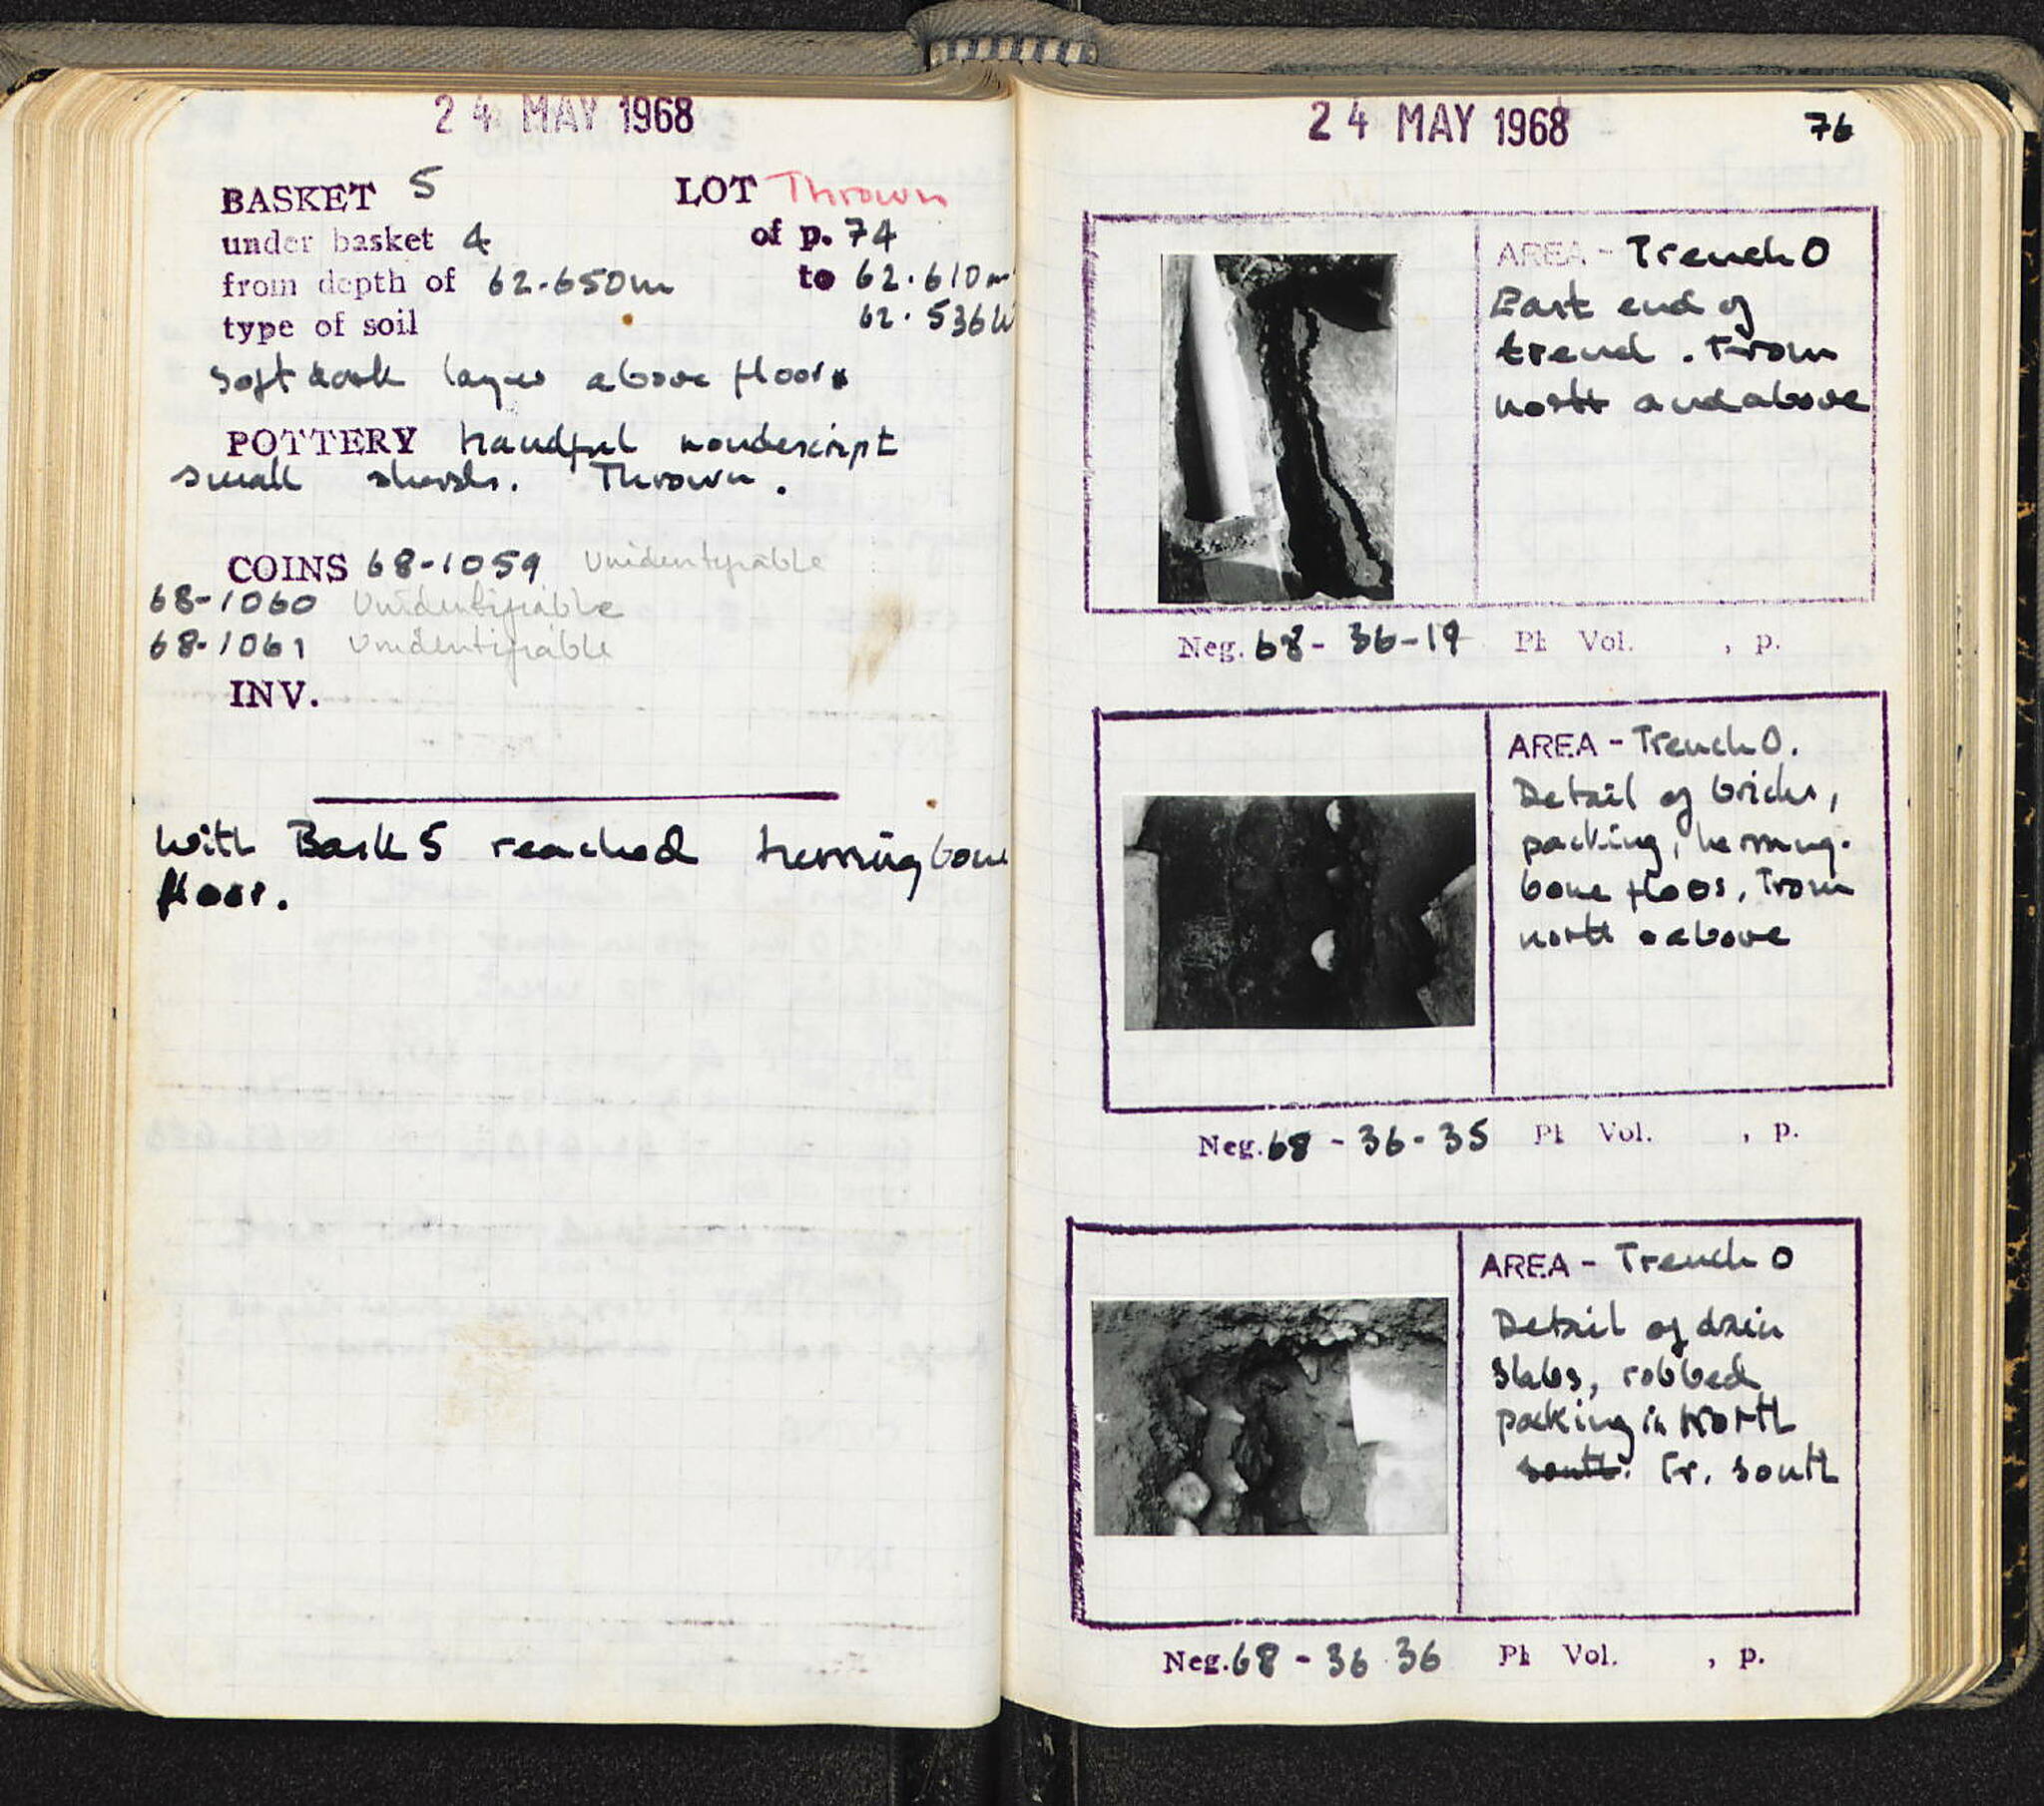 24 MAY 1968
BASKET 5 LOT Thrown
under basket 4 of p. 74
from depth of 62.650m to 62.610m
type of soil 62.536W
soft dark layer above floor
POTTERY handful nondescript
small sherds. Thrown.
COINS 68-1059 Unidentifiable
68-1060 Unidentifiable
68-1061 Unidentifiable
INV.
With Bask 5 reached herringbone
floor.
24 MAY 1968 76
AREA - Trench O
East end of
trench. From
north and above
Neg. 68-36-19 Ph Vol. , p.
AREA - Trench O.
Detail of bricks,
packing, herring-
bone floor, from
north above
Neg. 68-36-35 Ph Vol. , p.
AREA - Trench O
Detail of drain
slabs, robbed
packing in North
south. Fr. south
Neg. 68-36 36 Ph Vol. , p.